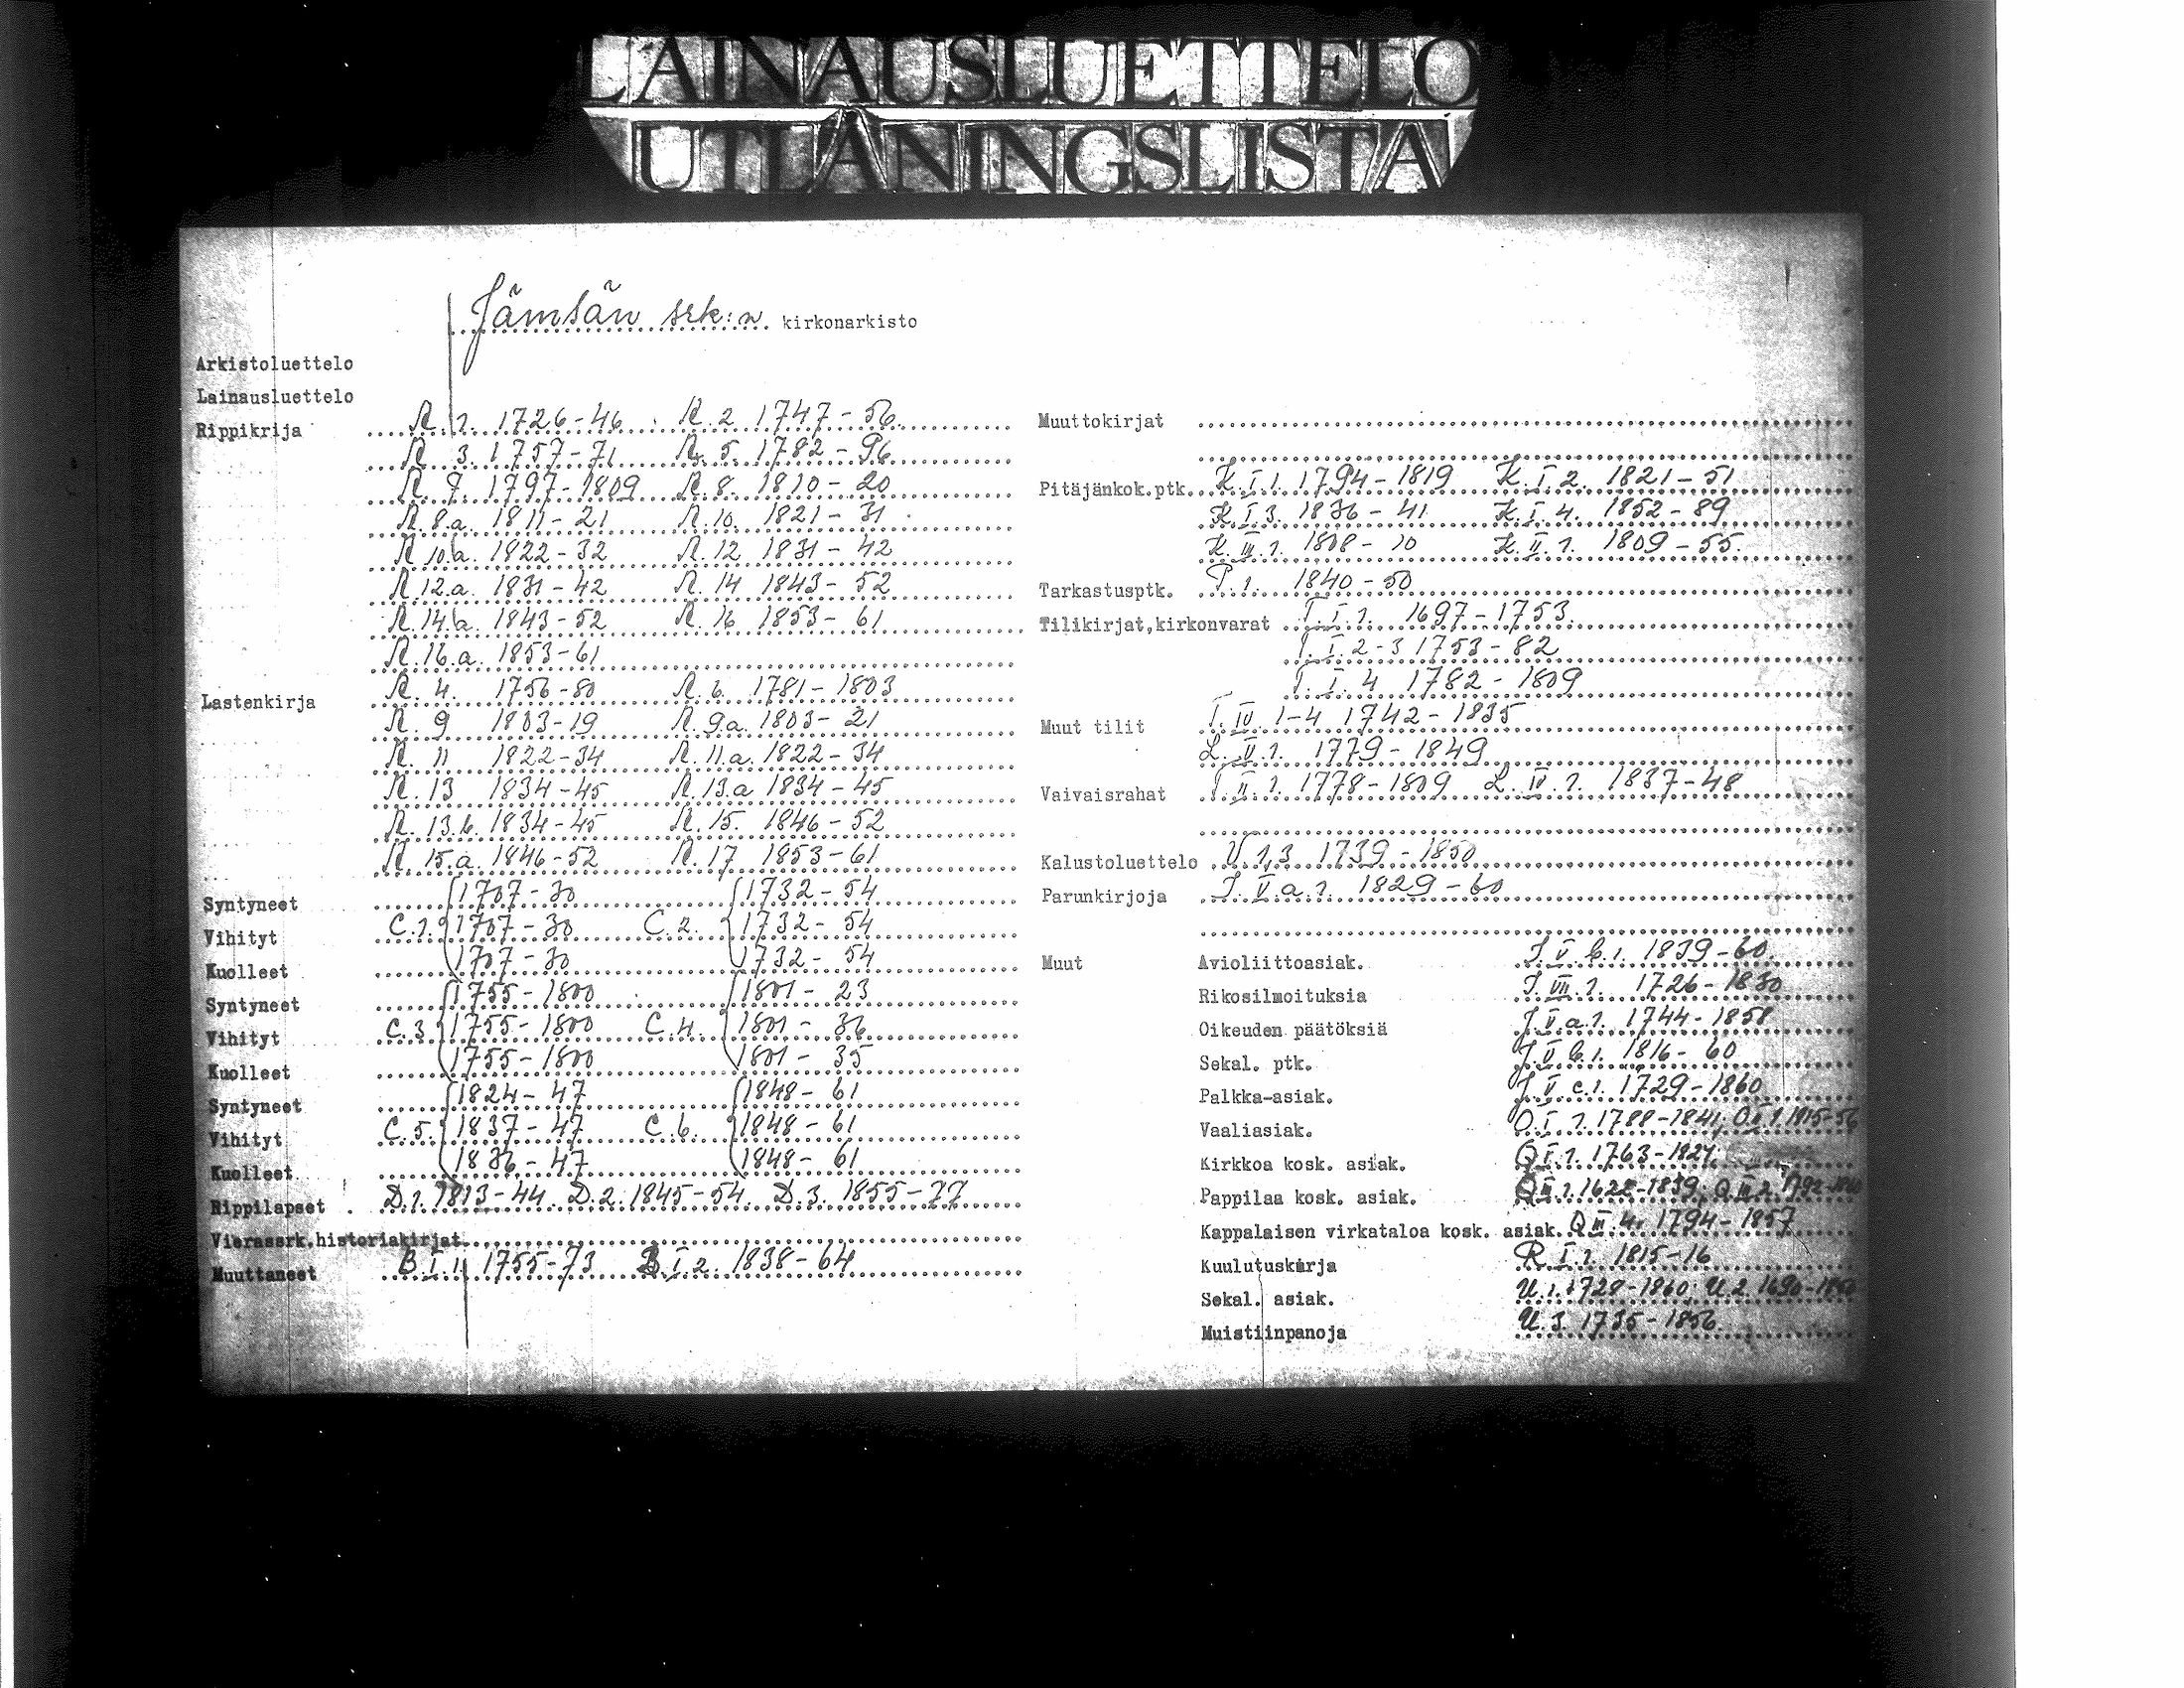 LAINAUSLUETTELO
UTLÅNINGSLISTA
Jämsän srk:n kirkonarkisto
Arkistoluettelo
Lainausluettelo
Rippikrija R. 1. 1726-46 R. 2 1747-56
R. 3. 1757-71 R. 5. 1782-96
R. 7. 1797-1809 R. 8. 1810-20
R. 8.a. 1811-21 R. 10. 1821-31
R. 10.a. 1822-32 R. 12 1831-42
R. 12.a. 1831-42 R. 14 1843-52
R. 14.a. 1843-52 R. 16 1853-61
R. 16.a. 1853-61
Lastenkirja R. 4. 1756-80 R. 6. 1781-1803
R. 9 1803-19 R. 9.a. 1803-21
R. 11 1822-34 R. 11.a. 1822-34
R. 13 1834-45 R. 13.a 1834-45
R. 13.b. 1834-45 R. 15. 1846-52
R. 15.a. 1846-52 R. 17 1853-61
Syntyneet 1707-30 1732-54
Vihityt C. 1. 1707-30 C. 2. 1732-54
Kuolleet 1707-30 1732-54
Syntyneet 1755-1800 1801-23
Vihityt C. 3. 1755-1800 C. 4. 1801-36
Kuolleet 1755-1800 1801-35
Syntyneet 1824-47 1848-61
Vihityt C. 5. 1837-47 C. 6. 1848-61
Kuolleet 1836-47 1848-61
Rippilapset D. 1. 1813-44 D. 2. 1845-54. D. 3. 1855-77
Vierassrk.historiakirjat
Muuttaneet B. I. 1. 1755-73 B. I. 2. 1838-64
Muuttokirjat
Pitäjänkok.ptk. K. I. 1. 1794-1819 K. I. 2. 1821-51
K. I. 3. 1836-41 K. I. 4. 1852-89
K. III. 1. 1808-10 K. II. 1. 1809-55.
Tarkastusptk. P. 1. 1840-50
Tilikirjat,kirkonvarat T. I. 1. 1697-1753.
T. I. 2-3 1753-82
T. I. 4 1782-1809
Muut tilit T. IV. 1-4 1742-1835
L. II. 1. 1779-1849
Vaivaisrahat T. II. 1. 1778-1809 L. IV. 1. 1837-48
Kalustoluettelo V. 1,3 1739-1850
Parunkirjoja I. V. a. 1. 1829-60
Muut Avioliittoasiak. I. V. b. 1. 1839-60.
Rikosilmoituksia I. VII. 1. 1726-1830
Oikeuden päätöksiä J. V. a. 1. 1744-1858
Sekal. ptk. J. V. b. 1. 1816-60
Palkka-asiak. J. V. c. 1. 1729-1860
Vaaliasiak. O. I. 1. 1788-1841;
Kirkkoa kosk. asiak. Q I. 1. 1763-1824
Pappilaa kosk. asiak. Q II. 1. 1628-1839;
Kappalaisen virkataloa kosk. asiak. Q III. 4. 1794-1857
Kuulutuskirja R. I. 1. 1815-16
Sekal. asiak. U. 1. 1728-1860; U. 2. 1690-1850
Muistiinpanoja U. 3. 1735-1856